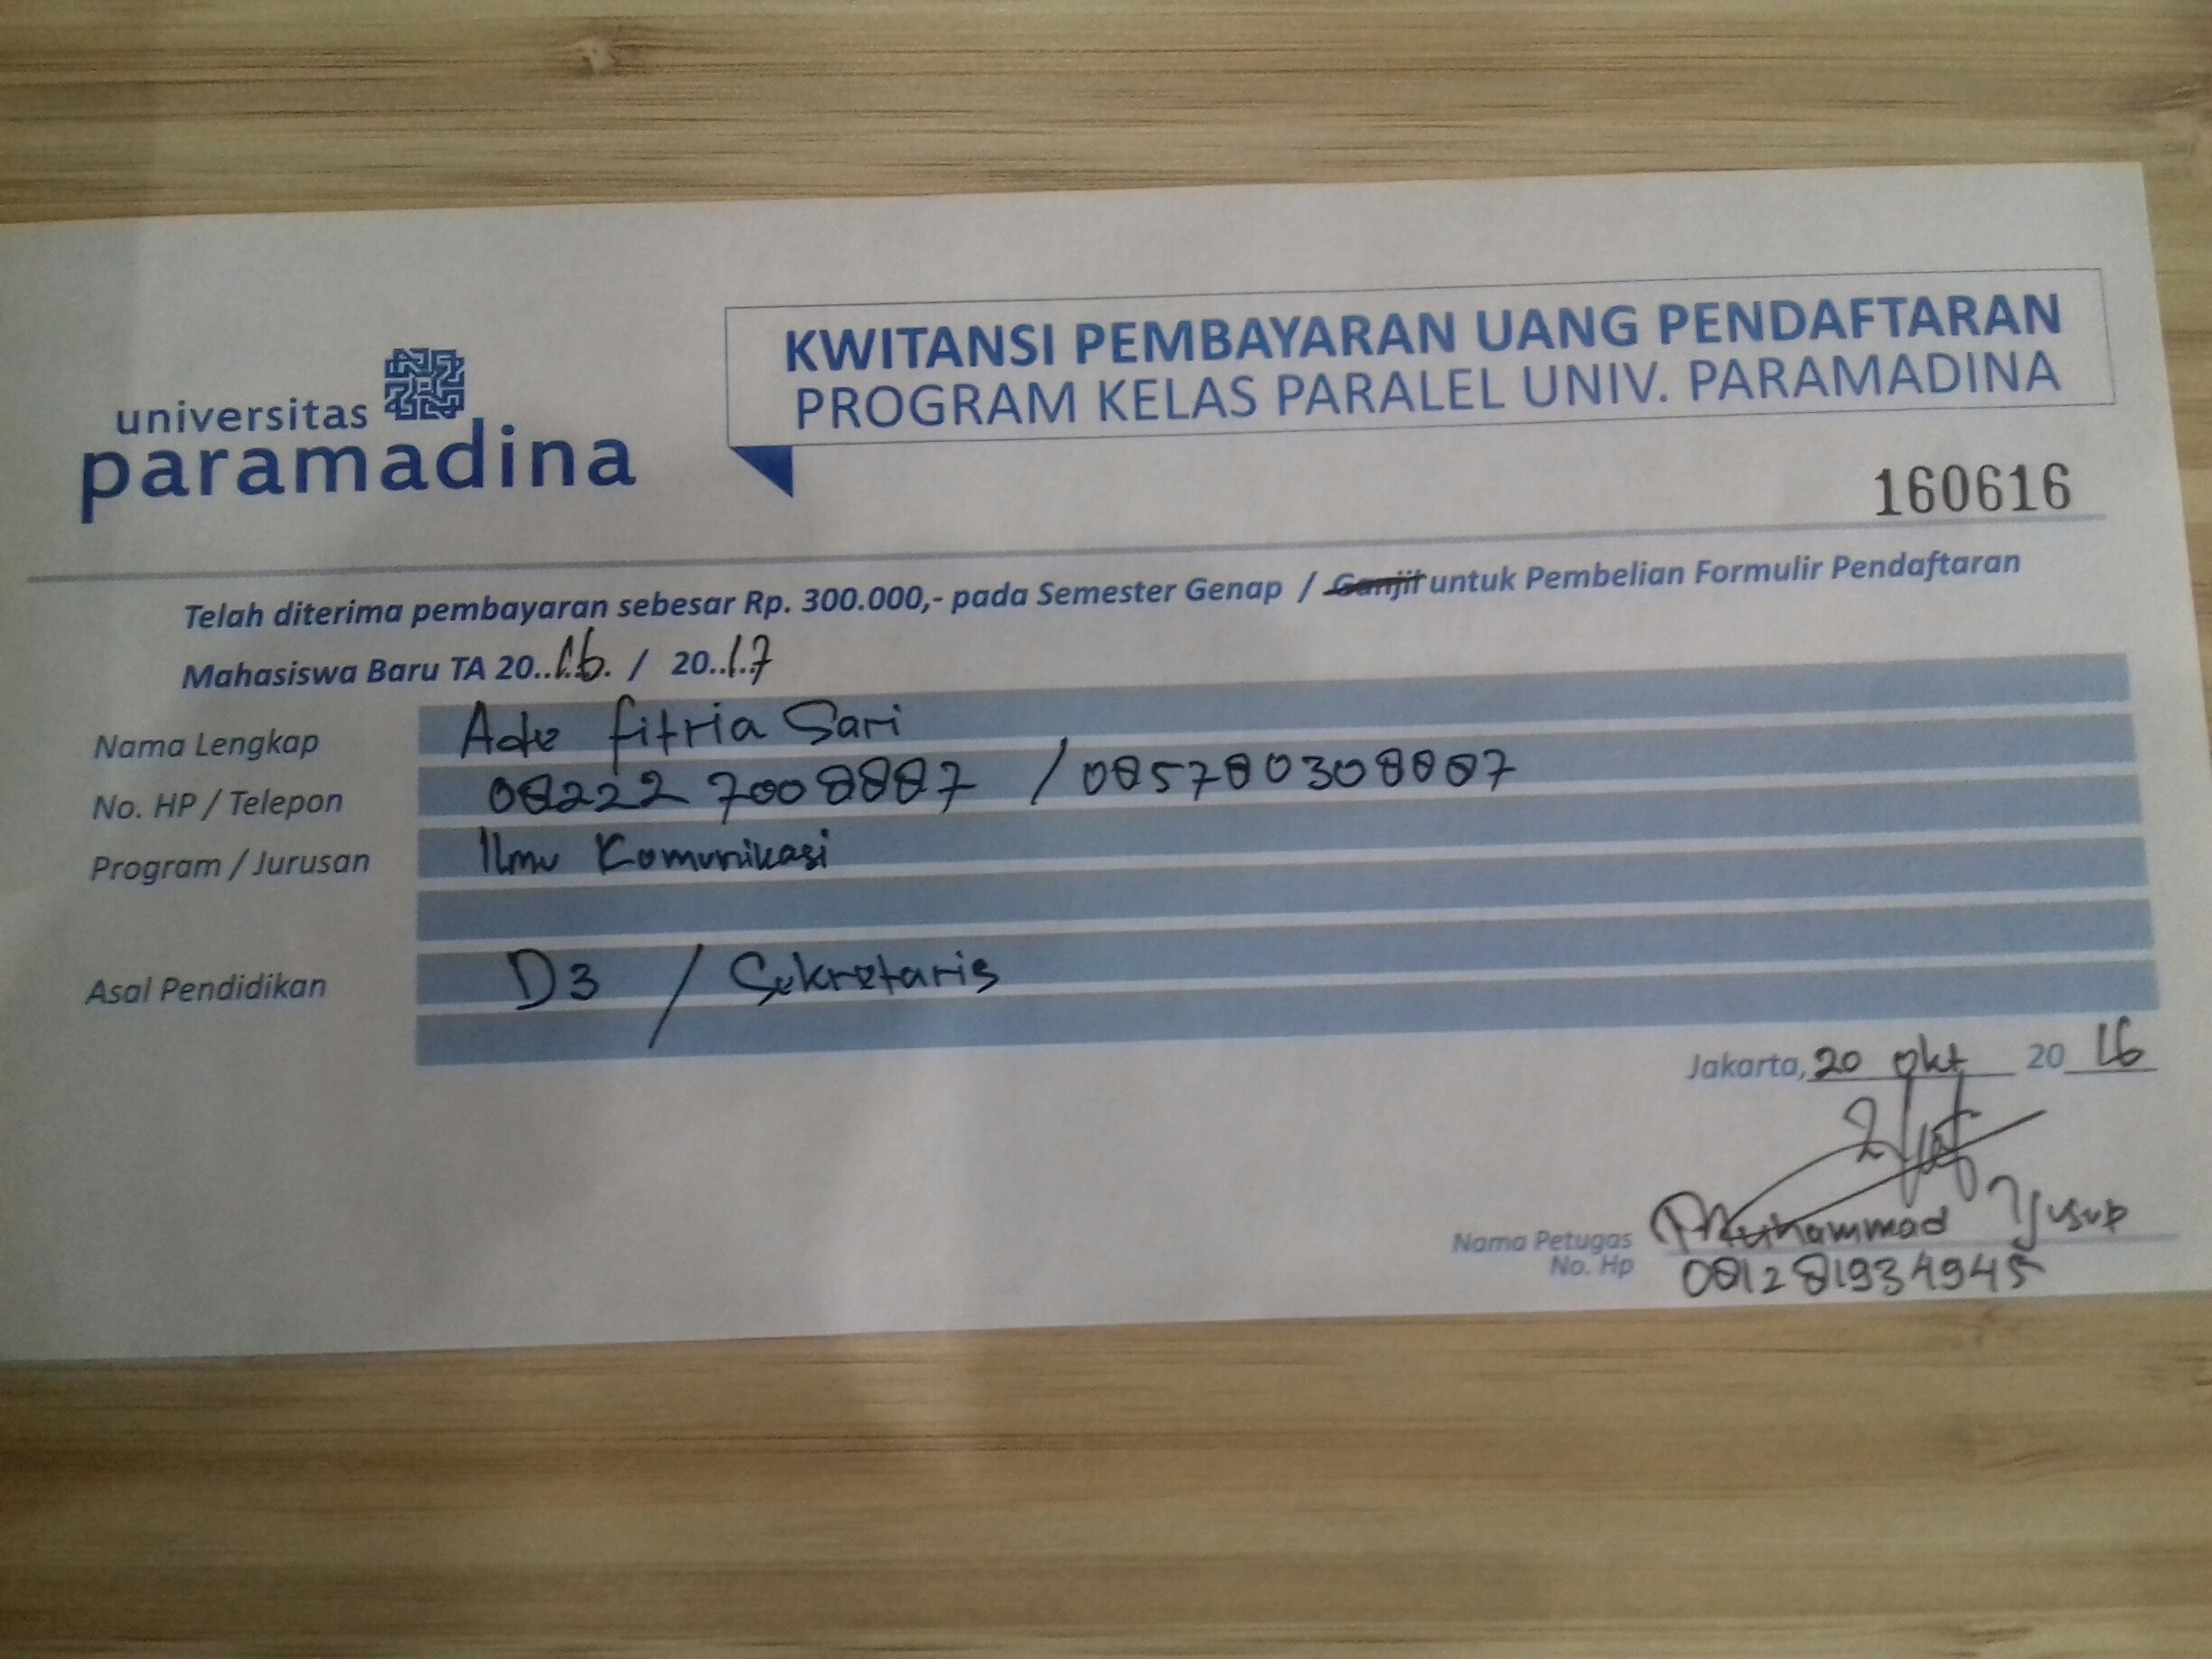 universitas
paramadina
KWITANSI PEMBAYARAN UANG PENDAFTARAN
PROGRAM KELAS PARALEL UNIV. PARAMADINA
160616
Telah diterima pembayaran sebesar Rp. 300.000,- pada Semester Genap / Ganjil untuk Pembelian Formulir Pendaftaran
Mahasiswa Baru TA 20..16. / 20..17
Nama Lengkap Ade Fitria Sari
No. HP / Telepon 08222 7008887 / 085780308887
Program / Jurusan Ilmu Komunikasi
Asal Pendidikan D3 / Sekretaris
Jakarta, 20 Okt 20 16
Nama Petugas Muhammad Yusup
No. Hp 081281934945